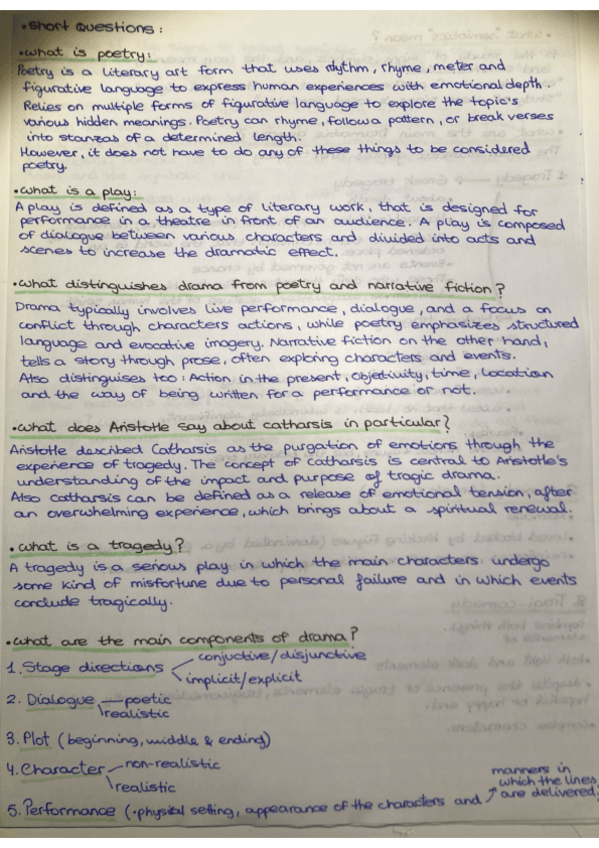 • Short Questions :
• What is poetry :
Poetry is a literary art form that uses rhythm, rhyme, meter and
figurative language to express human experiences with emotional depth.
Relies on multiple forms of figurative language to explore the topic's
various hidden meanings. Poetry can rhyme, follow a pattern, or break verses
into stanzas of a determined length.
However, it does not have to do any of these things to be considered
poetry.
• What is a play :
A play is defined as a type of literary work, that is designed for
performance in a theatre in front of an audience. A play is composed
of dialogue between various characters and divided into acts and
scenes to increase the dramatic effect.
• What distinguishes drama from poetry and narrative fiction?
Drama typically involves live performance, dialogue, and a focus on
conflict through characters actions, while poetry emphasizes structured
language and evocative imagery. Narrative fiction on the other hand,
tells a story through prose, often exploring characters and events.
Also distinguises too : Action in the present, objetivity, time, location
and the way of being written for a performance or not.
• What does Aristotle say about catharsis in particular?
Aristotle described Catharsis as the purgation of emotions through the
experience of tragedy. The concept of catharsis is central to Aristotle's
understanding of the impact and purpose of tragic drama.
Also catharsis can be defined as a release of emotional tension, after
an overwhelming experience, which brings about a spiritual renewal.
• What is a tragedy?
A tragedy is a serious play in which the main characters undergo
some kind of misfortune due to personal failure and in which events
conclude tragically.
• What are the main components of drama?
1. Stage directions
conjuctive / disjunctive
implicit / explicit
2. Dialogue
poetic
realistic
3. Plot (beginning, middle & ending)
4. Character
non-realistic
realistic
5. Performance (• physical setting, appearance of the characters and
manners in
which the lines
are delivered)